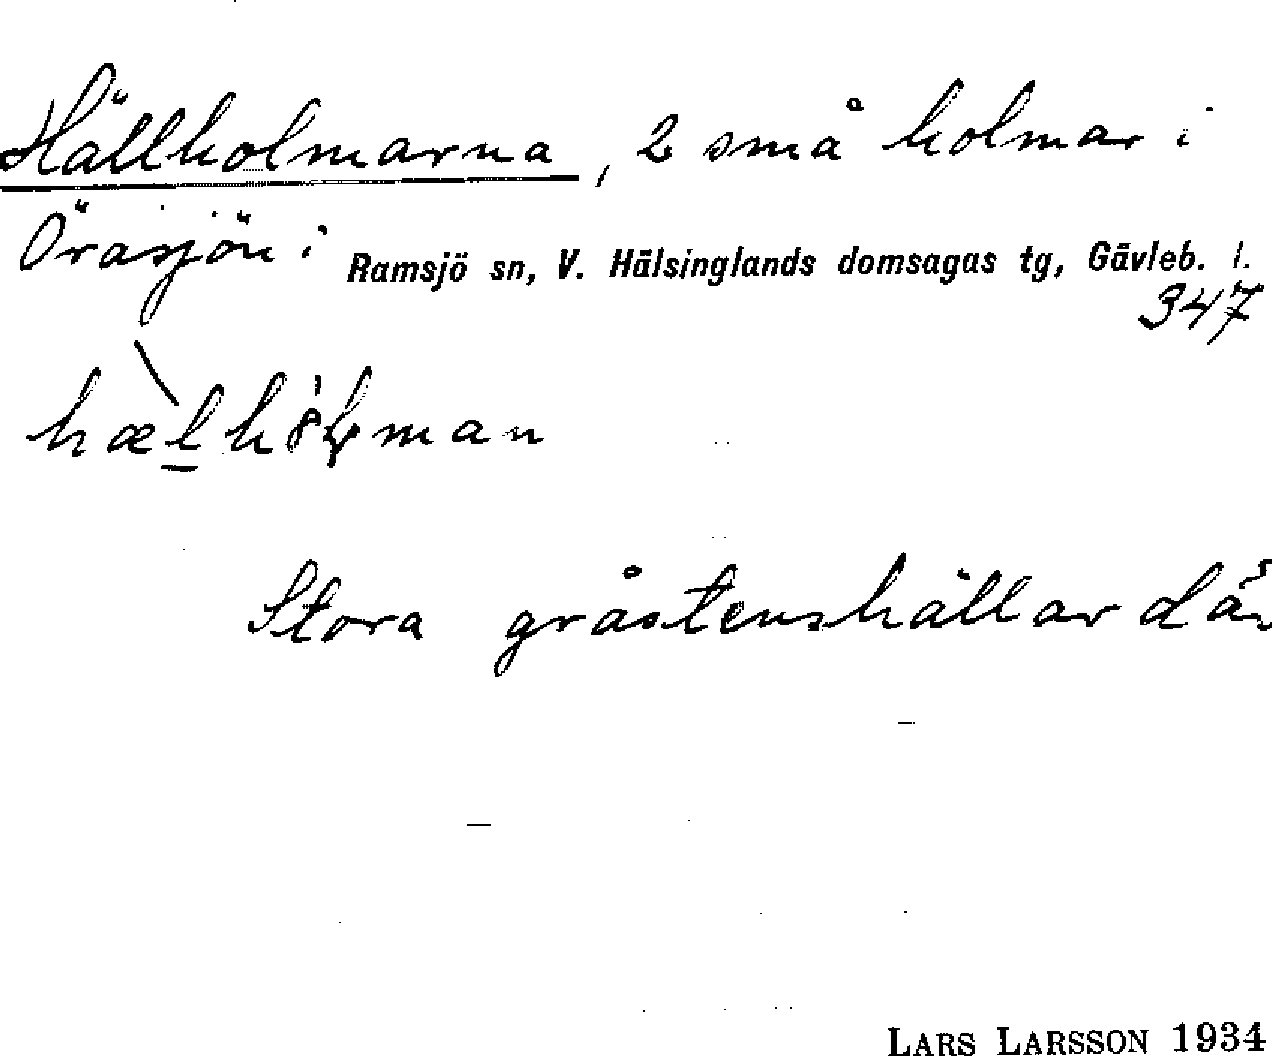 Hällholmarna, 2 små holmar i
Örasjön i Ramsjö sn, V. Hälsinglands domsagas tg, Gävleb. l.
347
Stora gråstenshällar där
LARS LARSSON 1934